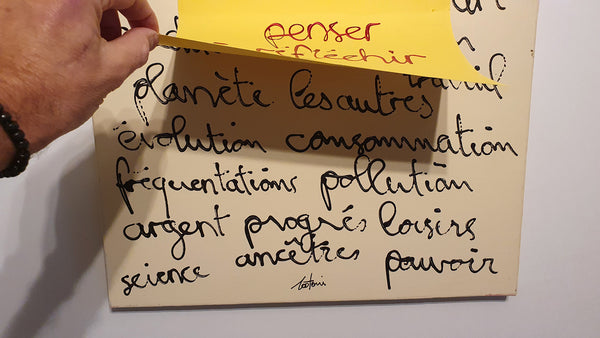 penser
réfléchir
travail
planète les autres
évolution consommation
fréquentations pollution
argent progrés loisirs
science ancêtres pouvoir